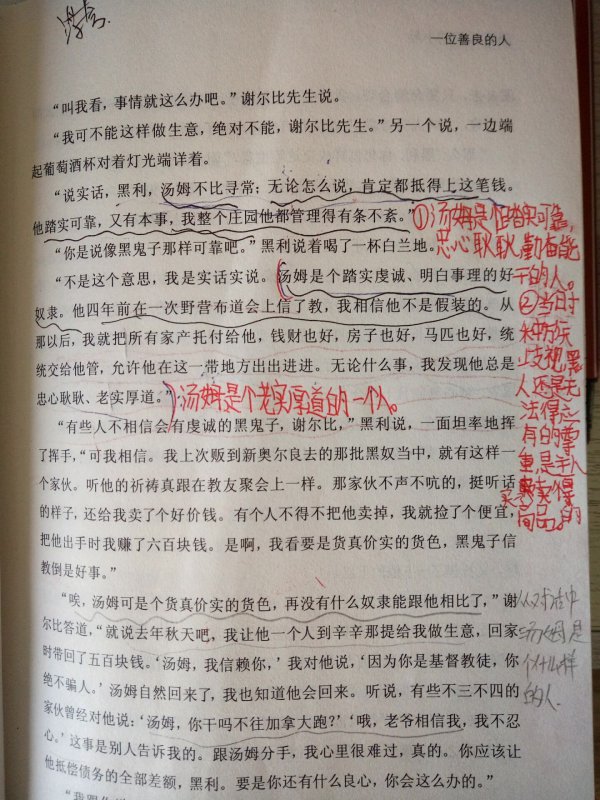 一位善良的人
“叫我看，事情就这么办吧。”谢尔比先生说。
“我可不能这样做生意，绝对不能，谢尔比先生。”另一个说，一边端
起葡萄酒杯对着灯光端详着。
“说实话，黑利，汤姆不比寻常；无论怎么说，肯定都抵得上这笔钱。
他踏实可靠，又有本事，我整个庄园他都管理得有条不紊。”
“你是说像黑鬼子那样可靠吧。”黑利说着喝了一杯白兰地。
“不是这个意思，我是实话实说。汤姆是个踏实虔诚、明白事理的好
奴隶。他四年前在一次野营布道会上信了教，我相信他不是假装的。从
那以后，我就把所有家产托付给他，钱财也好，房子也好，马匹也好，统
统交给他管，允许他在这一带地方出出进进。无论什么事，我发现他总是
忠心耿耿、老实厚道。”
汤姆是个老实厚道的一个人。
“有些人不相信会有虔诚的黑鬼子，谢尔比，”黑利说，一面坦率地挥
了挥手，“可我相信。我上次贩到新奥尔良去的那批黑奴当中，就有这样一
个家伙。听他的祈祷真跟在教友聚会上一样。那家伙不声不吭的，挺听话
的样子，还给我卖了个好价钱。有个人不得不把他卖掉，我就捡了个便宜，
把他出手时我赚了六百块钱。是啊，我看要是货真价实的货色，黑鬼子信
教倒是好事。”
“唉，汤姆可是个货真价实的货色，再没有什么奴隶能跟他相比了，”谢
尔比答道，“就说去年秋天吧，我让他一个人到辛辛那提给我做生意，回家
时带回了五百块钱。‘汤姆，我信赖你，’我对他说，‘因为你是基督教徒，你
绝不骗人。’汤姆自然回来了，我也知道他会回来。听说，有些不三不四的
家伙曾经对他说：‘汤姆，你干吗不往加拿大跑？’‘哦，老爷相信我，我不忍
心。’这事是别人告诉我的。跟汤姆分手，我心里很难过，真的。你应该让
他抵偿债务的全部差额，黑利。要是你还有什么良心，你会这么办的。”
①汤姆是个踏实可靠，
忠心耿耿，勤奋能
干的人。
②当时
歧视黑
人还是无
法得应
有的尊
重，是主人
买卖得的
商品。
从对话中
汤姆是
个什么样
的人